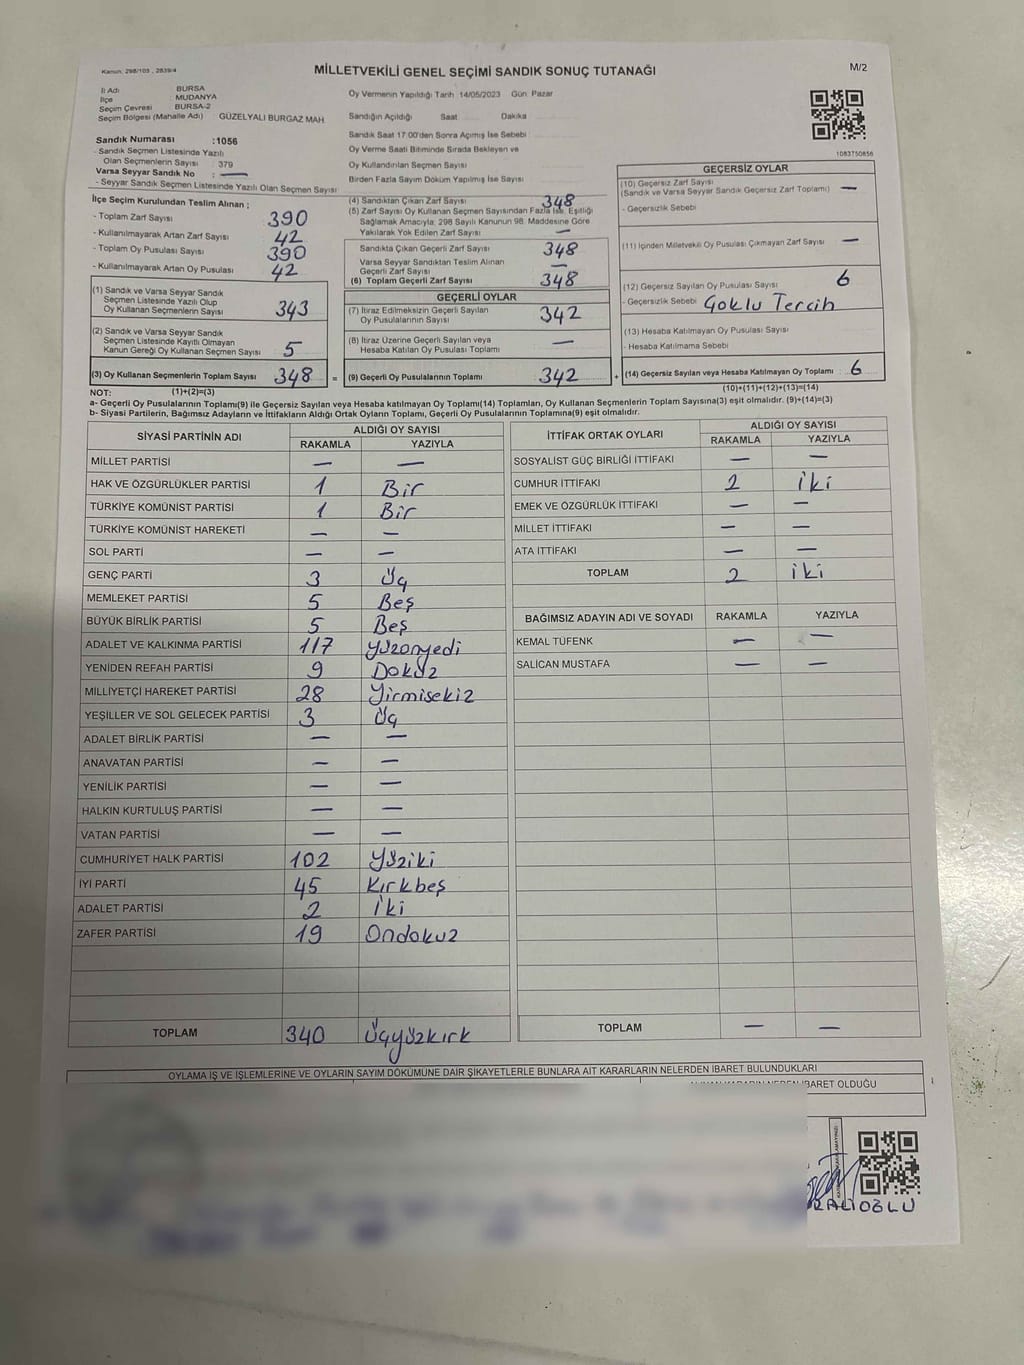 Kanun: 298/105 , 2839/4
MİLLETVEKİLİ GENEL SEÇİMİ SANDIK SONUÇ TUTANAĞI
M/2
İl Adı BURSA
İlçe MUDANYA
Seçim Çevresi BURSA-2
Seçim Bölgesi (Mahalle Adı) GÜZELYALI BURGAZ MAH.
Oy Vermenin Yapıldığı Tarih :14/05/2023 Gün: Pazar
Sandığın Açıldığı Saat Dakika
Sandık Saat 17:00'den Sonra Açımış İse Sebebi
Oy Verme Saati Bitiminde Sırada Bekleyen ve
Oy Kullandırılan Seçmen Sayısı
Birden Fazla Sayım Döküm Yapılmış İse Sayısı
1083750656
Sandık Numarası :1056
- Sandık Seçmen Listesinde Yazılı
Olan Seçmenlerin Sayısı : 379
Varsa Seyyar Sandık No : —
- Seyyar Sandık Seçmen Listesinde Yazılı Olan Seçmen Sayısı
İlçe Seçim Kurulundan Teslim Alınan ;
- Toplam Zarf Sayısı 390
- Kullanılmayarak Artan Zarf Sayısı 42
- Toplam Oy Pusulası Sayısı 390
- Kullanılmayarak Artan Oy Pusulası 42
(1) Sandık ve Varsa Seyyar Sandık
Seçmen Listesinde Yazılı Olup
Oy Kullanan Seçmenlerin Sayısı 343
(2) Sandık ve Varsa Seyyar Sandık
Seçmen Listesinde Kayıtlı Olmayan
Kanun Gereği Oy Kullanan Seçmen Sayısı 5
(3) Oy Kullanan Seçmenlerin Toplam Sayısı 348 =
(4) Sandıktan Çıkan Zarf Sayısı 348
(5) Zarf Sayısı Oy Kullanan Seçmen Sayısından Fazla İse, Eşitliği
Sağlamak Amacıyla; 298 Sayılı Kanunun 98. Maddesine Göre
Yakılarak Yok Edilen Zarf Sayısı —
Sandıkta Çıkan Geçerli Zarf Sayısı 348
Varsa Seyyar Sandıktan Teslim Alınan
Geçerli Zarf Sayısı —
(6) Toplam Geçerli Zarf Sayısı 348
GEÇERLİ OYLAR
(7) İtiraz Edilmeksizin Geçerli Sayılan
Oy Pusulalarının Sayısı 342
(8) İtiraz Üzerine Geçerli Sayılan veya
Hesaba Katılan Oy Pusulası Toplamı —
(9) Geçerli Oy Pusulalarının Toplamı 342 +
GEÇERSİZ OYLAR
(10) Geçersiz Zarf Sayısı
(Sandık ve Varsa Seyyar Sandık Geçersiz Zarf Toplamı) —
- Geçersizlik Sebebi
(11) İçinden Milletvekili Oy Pusulası Çıkmayan Zarf Sayısı —
(12) Geçersiz Sayılan Oy Pusulası Sayısı 6
- Geçersizlik Sebebi Çoklu Tercih
(13) Hesaba Katılmayan Oy Pusulası Sayısı
- Hesaba Katılmama Sebebi
(14) Geçersiz Sayılan veya Hesaba Katılmayan Oy Toplamı : 6
NOT: (1)+(2)=(3) (10)+(11)+(12)+(13)=(14)
a- Geçerli Oy Pusulalarının Toplamı(9) ile Geçersiz Sayılan veya Hesaba katılmayan Oy Toplamı(14) Toplamları, Oy Kullanan Seçmenlerin Toplam Sayısına(3) eşit olmalıdır. (9)+(14)=(3)
b- Siyasi Partilerin, Bağımsız Adayların ve İttifakların Aldığı Ortak Oyların Toplamı, Geçerli Oy Pusulalarının Toplamına(9) eşit olmalıdır.
SİYASİ PARTİNİN ADI ALDIĞI OY SAYISI
RAKAMLA YAZIYLA
MİLLET PARTİSİ — —
HAK VE ÖZGÜRLÜKLER PARTİSİ 1 Bir
TÜRKİYE KOMÜNİST PARTİSİ 1 Bir
TÜRKİYE KOMÜNİST HAREKETİ — —
SOL PARTİ — —
GENÇ PARTİ 3 Üç
MEMLEKET PARTİSİ 5 Beş
BÜYÜK BİRLİK PARTİSİ 5 Beş
ADALET VE KALKINMA PARTİSİ 117 Yüzonyedi
YENİDEN REFAH PARTİSİ 9 Dokuz
MİLLİYETÇİ HAREKET PARTİSİ 28 Yirmisekiz
YEŞİLLER VE SOL GELECEK PARTİSİ 3 Üç
ADALET BİRLİK PARTİSİ — —
ANAVATAN PARTİSİ — —
YENİLİK PARTİSİ — —
HALKIN KURTULUŞ PARTİSİ — —
VATAN PARTİSİ — —
CUMHURİYET HALK PARTİSİ 102 Yüziki
İYİ PARTİ 45 Kırkbeş
ADALET PARTİSİ 2 İki
ZAFER PARTİSİ 19 Ondokuz
TOPLAM 340 Üçyüzkırk
İTTİFAK ORTAK OYLARI ALDIĞI OY SAYISI
RAKAMLA YAZIYLA
SOSYALİST GÜÇ BİRLİĞİ İTTİFAKI — —
CUMHUR İTTİFAKI 2 İki
EMEK VE ÖZGÜRLÜK İTTİFAKI — —
MİLLET İTTİFAKI — —
ATA İTTİFAKI — —
TOPLAM 2 İki
BAĞIMSIZ ADAYIN ADI VE SOYADI RAKAMLA YAZIYLA
KEMAL TÜFENK — —
SALİCAN MUSTAFA — —
TOPLAM — —
OYLAMA İŞ VE İŞLEMLERİNE VE OYLARIN SAYIM DÖKÜMÜNE DAİR ŞİKAYETLERLE BUNLARA AİT KARARLARIN NELERDEN İBARET BULUNDUKLARI
İBARET OLDUĞU